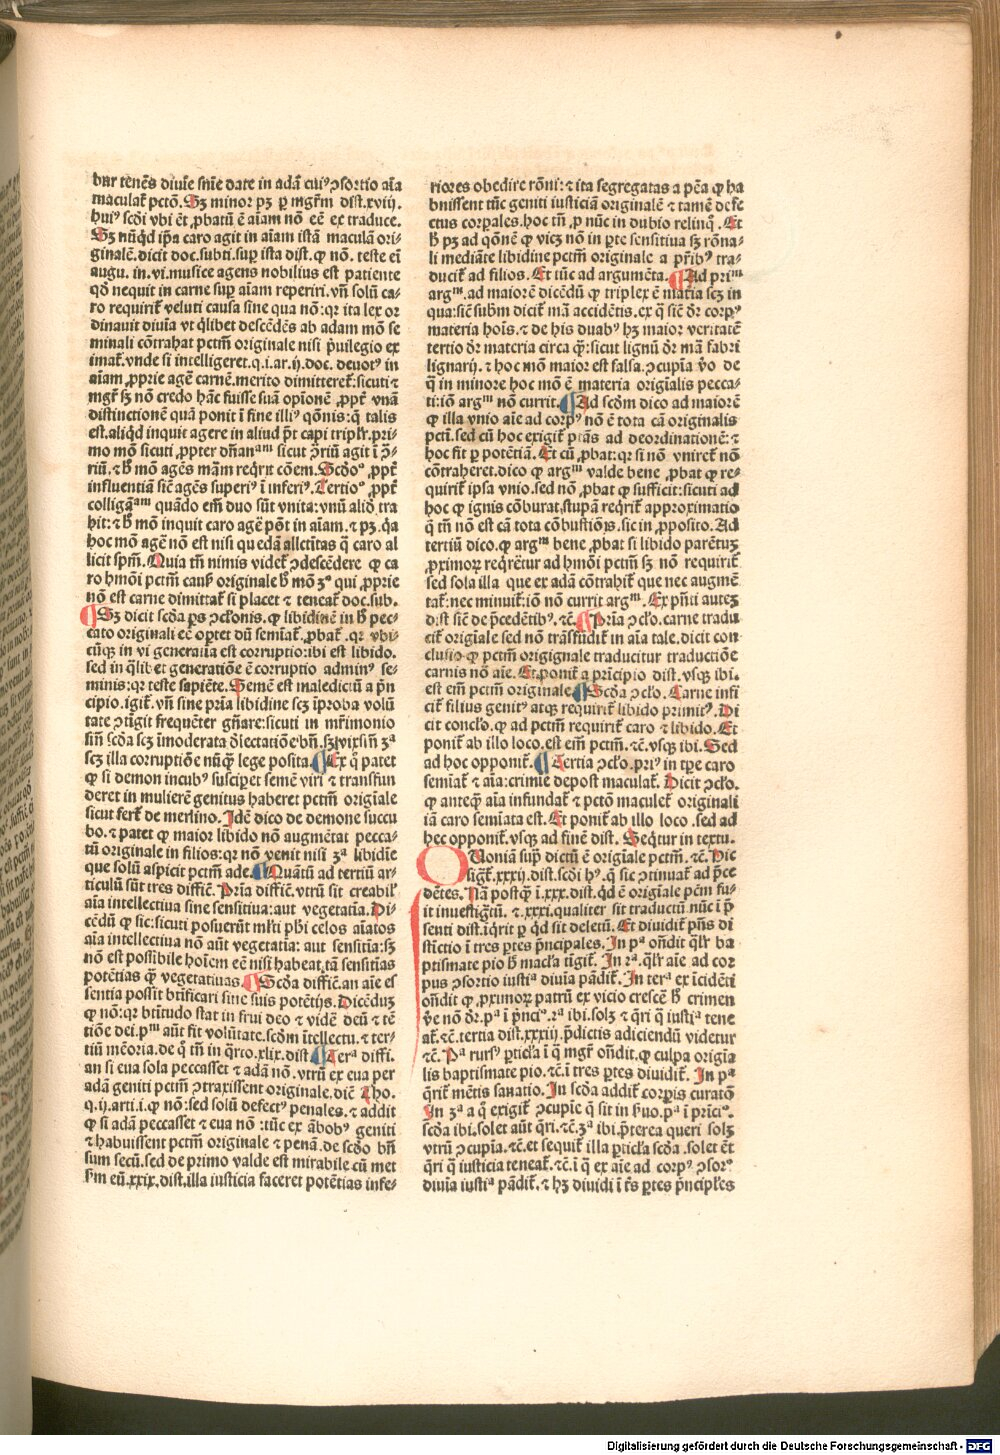 bnr tenēs diuīe snīe date in adā cuiꝰ ↄsortio aīa
maculaꝶ pctō. Sz minor pꝫ ꝑ mgr̄m dist. xvij.
huiꝰ scdi vbi ēt ꝓbatū ē aīam nō eē ex traduce.
Sz nūqd ip̄a caro agit in aīam istā maculā ori-
ginalē. dicit doc. subti. suꝑ ista dist. ꝙ nō. teste eī
augu. in. vi. musice agens nobilius est patiente
qd̄ nequit in carne suꝑ aīam reperiri. vn̄ solū ca-
ro requiriꝶ veluti causa sine qua nō: qꝛ ita lex or
dinauit diuīa vt q̄libet descēdēs ab adam mō se
minali cōtrahat pctm̄ originale nisi p̄uilegio ex
imaꝶ. vnde si intelligeret. q. i. ar. ij. doc. deuotꝰ in
aīam ꝓprie agē carnē. merito dimittereꝶ: sicuti ⁊
mgr̄ sꝫ nō credo hāc fuisse suā opionē ꝓpꝶ vnā
distinctionē quā ponit ī fine illiꝰ qōnis: q̄ talis
est. aliqd inquit agere in aliud p̄t capi triplr̄. pri-
mo mō sicuti ꝓpter dn̄anᵃᵐ sicut ꝓ̄riū agit ī ꝓ̄-
riū. ⁊ h̄ mō agēs mām reqrit cōem. Scdoᵒ ꝓpꝶ
influentiā siē agēs superiꝰ ī inferiꝰ. Tertioᵒ ꝓpꝶ
colligāᵃᵐ quādo em̄ duo sūt vnita: vnū aliō tra
hit: ⁊ h̄ mō inquit caro agē pōt in aīam. ⁊ pꝫ qꝛ
hoc mō agē nō est nisi quedā allctītas q̄ caro al
licit spm̄. Quia tn̄ nimis videꝶ ↄdescēdere ꝙ ca
ro hmōi pctm̄ cauſꝶ originale h̄ mō ꝫᵒ qui ꝓprie
nō est carne dimittaꝶ si placet ⁊ teneaꝶ doc. sub.
Sz dicit scd̄a ꝑs ↄclonis. ꝙ libidinē in h̄ pec-
cato originali eē oportet dū semiaꝶ. ꝓbaꝶ. qꝛ vbi-
cūqꝫ in vi generatīa est corruptio: ibi est libido.
sed in q̄libet generatiōe ē corruptio adminꝰ se-
minis: qꝛ teste sapiēte. Semē est maledictū a p̄n
cipio. igiꝶ. vn̄ sine pria libidine scꝫ īproba volū
tate ↄtīgit frequēter gn̄are: sicuti in mr̄imonio
siīn scda scꝫ īmoderata dlectatiōe: bn̄. sꝫ vix siīn ꝫᵃ
scꝫ illa corruptiōe nūq̄ lege posita. Ex q̄ patet
ꝙ si demon incubꝰ susciperet semē viri ⁊ transfun
deret in mulierē genitus haberet pctm̄ origiale
sicut ferꝶ de merlino. Idē dico de demone succu
bo. ⁊ patet ꝙ maior libido nō augmētat pecca-
tū originale in filios: qꝛ nō venit nisi ꝫᵃ libidīe
que solū aspicit pctm̄ ade. Quātū ad tertiū ar-
ticulū sūt tres diffic̄. Pria diffic̄. vtrū sit creabilꝭ
aīa intellectiua sine sensitiua: aut vegetatīa. Di-
cēdū ꝙ sic: sicuti posuerūt mlti phi celos aīatos
aīa intellectiua nō aūt vegetatīa: aut sensitīa: sꝫ
nō est possibile hoīem eē nisi habeat tā sensitias
potētias q̄ꝫ vegetatiuas. Scda diffic̄. an aīe es
sentia possit btificari sine suis potētijs. Dicēduꝫ
ꝙ nō: qꝛ btitudo stat in frui deo ⁊ vidē deū ⁊ tē
tiōe dei. pᵐ aūt fit volūtate. scdm̄ ītellectu. ⁊ ter-
tiū mēoria. de q̄ tn̄ in qꝛto. xlix. dist. Terᵃ diffi.
an si eua sola peccasset ⁊ adā nō. vtrū ex eua per
adā geniti pctm̄ ↄtraxissent originale. dic̄ Tho.
q. ij. arti. i. ꝙ nō: sed solū defectꝰ penales. ⁊ addit
ꝙ si adā peccasset ⁊ eua nō: tūc ex abobꝰ geniti
⁊ habuissent pctm̄ originale ⁊ penā. de scdo bn̄
sum secū. sed de primo valde est mirabile cū met
h̄m eū. xxix. dist. illa iusticia faceret potētias infe-
riores obedire rōni: ⁊ ita segregatas a pēa ꝙ ha
buissent tūc geniti iusticiā originalē ⁊ tamē defe
ctus corpales. hoc tn̄ ꝓ nūc in dubio relinq̄. Et
h̄ pꝫ ad qōnē ꝙ vicꝫ nō in ꝑte sensitiua sꝫ rōna-
li mediāte libidine pctm̄ originale a prībꝰ tra-
duciꝶ ad filios. Et tūc ad argumēta. Ad priᵐ
argᵐ. ad maiorē dicēdū ꝙ triplex ē mat̄ia scꝫ in
qua: siē subm̄ diciꝶ mā accidētis. ex q̄ siē dr̄ corpꝰ
materia hoīs. ⁊ de his duabꝰ hꝫ maior veritatē
tertio dr̄ materia circa q̄: sicut lignū dr̄ mā fabri
lignarij. ⁊ hoc mō maior est falsa. ↄcupīa v̄o de
q̄ in minore hoc mō ē materia origīalis pecca-
ti: iō argᵐ nō currit. Ad scdm̄ dico ad maiorē
ꝙ illa vnio aīe ad corpꝰ nō ē tota cā originalis
pcti. sed cū hoc exigiꝶ ptās ad dcordinationē: ⁊
hoc fit ꝑ potētiā. Et cū ꝓbat: qꝛ si nō vnireꝶ nō
cōtraheret. dico ꝙ argᵐ valde bene ꝓbat ꝙ re-
quiriꝶ ipsa vnio. sed nō ꝓbat ꝙ sufficit: sicuti ad
hoc ꝙ ignis cōburat stupā reqriꝶ approximatio
q̄ tn̄ nō est cā tota cōbustiōīs. sic in ꝓposito. Ad
tertiū dico. ꝙ argᵐ bene ꝓbat si libido parētuꝫ
ꝓximoꝝ reqrēꝶ ad hmōi pctm̄ sꝫ nō requiriꝶ
sed sola illa que ex adā cōtrahiꝶ que nec augmē
taꝶ: nec minuiꝶ: iō nō currit argᵐ. Ex pn̄ti auteꝫ
dist siē de p̄cedētibꝰ. ⁊c̄. Pria ↄclo. carne tradu
ciꝶ origiale sed nō trāsfūdiꝶ in aīa tale. dicit con
clusio ꝙ pctm̄ origignale traducitur traductiōe
carnis nō aīe. Et poniꝶ a pricipio dist. vsqꝫ ibi.
est em̄ pctm̄ originale. Scda ↄclo. Carne infi
ciꝶ filius genitꝰ atqꝫ requiriꝶ libido primitꝰ. Di
cit conclo. ꝙ ad pctm̄ requiriꝶ caro ⁊ libido. Et
poniꝶ ab illo loco. est em̄ pctm̄. ⁊c̄. vsqꝫ ibi. Sed
ad hoc opponiꝶ. Tertia ↄclo. priꝰ in tpe caro
semiaꝶ ⁊ aīa: crimie depost maculaꝶ. Dicit ↄclo.
ꝙ anteq̄ aīa infundaꝶ ⁊ pctō maculeꝶ originali
iā caro semīata est. Et poniꝶ ab illo loco. sed ad
hec opponiꝶ. vsqꝫ ad finē dist. Seqtur in textu.
Quoniā suꝑ dictū ē origīale pctm̄. ⁊c̄. Hic
sigꝶ. xxxij. dist. scdi hꝰ. q̄ sic ↄtinuaꝶ ad p̄ce
dētes. Nā postq̄ ī. xxx. dist. qd ē origīale pctm̄ fu-
it inuestigtū. ⁊. xxxi. qualiter sit traductū nūc ī p̄
senti dist. iqrit ꝑ qd sit deletū. Et diuidiꝶ pn̄s di
stictio ī tres ꝑtes p̄ncipales. In pᵃ on̄dit qlꝛ ba
ptismate pio h̄ macla tīgiꝶ. In ꝛᵃ. qlꝛ aīe ad cor
pus ↄsortio iustiᵃ diuīa pādiꝶ. In terᵃ ex īcidēti
on̄dit ꝙ ꝓximoꝝ patrū ex vicio crescē h̄ crimen
v̄e nō dr̄. pᵃ ī p̄nciᵒ. ꝛᵃ ibi. solꝫ ⁊ qri q̄ iustiᵃ tene
aꝶ. ⁊c̄. tertia dist. xxxij. p̄dictis adiciendū videtur
⁊c̄. Pᵃ rursꝰ ꝑticla ī q̄ mgr̄ on̄dit. ꝙ culpa origīa
lis baptismate pio. ⁊c̄. ī tres ꝑtes diuidiꝶ. In pᵃ
qriꝶ mētis sanatio. In scda addiꝶ corpis curatō
In ꝫᵃ a q̄ exigiꝶ ↄcupīe q̄ sit in h̄uo. pᵃ ī prīciᵒ.
scda ibi. solet aūt qri. ⁊c̄. ꝫᵃ ibi. p̄terea queri solꝫ
vtrū ↄcupīa. ⁊c̄. et sequiꝶ illa ꝑticla scda. solet ēt
qri q̄ iusticia teneaꝶ. ⁊c̄. ī q̄ ex aīe ad corpꝰ ↄsorᵒ
diuīa iustiᵃ pādiꝶ. ⁊ hꝫ diuidi ī tˢ ꝑtes p̄nciples
Digitalisierung gefördert durch die Deutsche Forschungsgemeinschaft - DFG